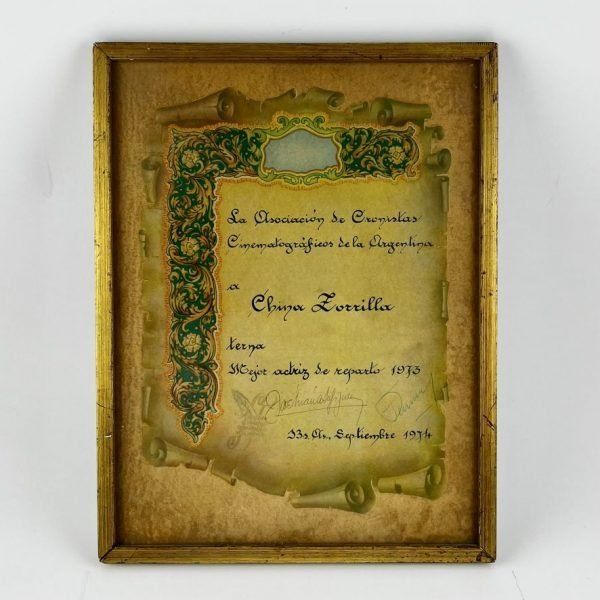 La Asociación de Cronistas
Cinematográficos de la Argentina
a
China Zorrilla
terna
Mejor actriz de reparto 1973
Bs. As., Septiembre 1974